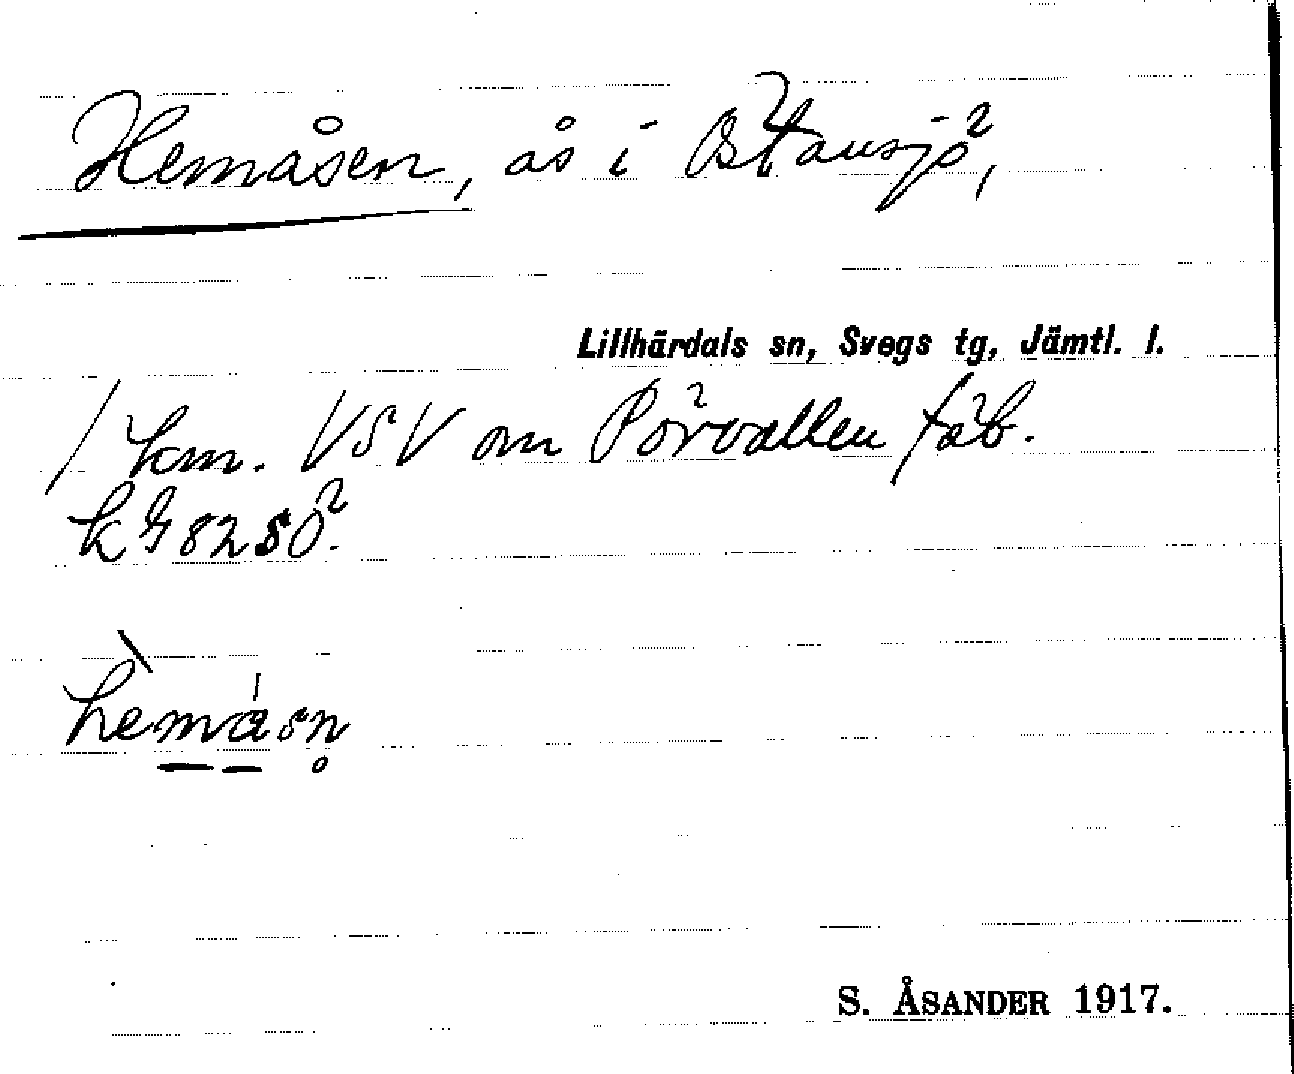 Hemåsen, ås i Östansjö,
Lillhärdals sn, Svegs tg, Jämtl. l.
1 km. VSV om Pörvallen fäb.
k 982 SÖ.
hemåsn̥
S. ÅSANDER 1917.